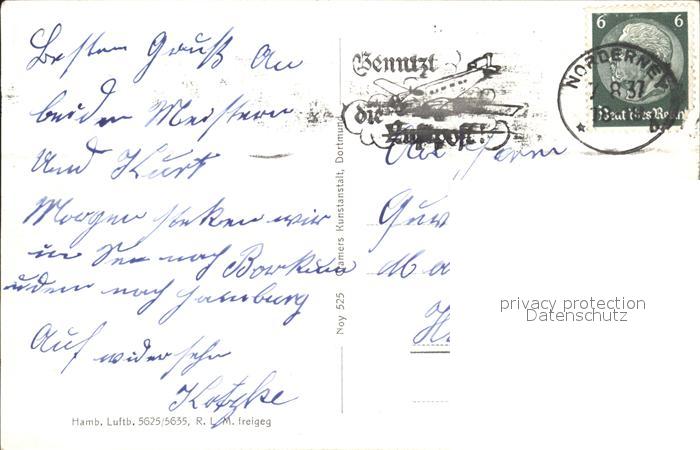 Besten Gruß An
beiden Meistern
Und Kurt
Morgen steken wir
in See nach Borkum
u dem nach Hamburg
Auf widersehn
Kotzke
Hamb. Luftb. 5625/5655, R. L. M. freigeg
Noy 525 Cramers Kunstanstalt, Dortmund
Benutzt
die
Luftpost!
NORDERNEY
8.37
6 6
Deutsches Reich
An Herrn
privacy protection
Datenschutz